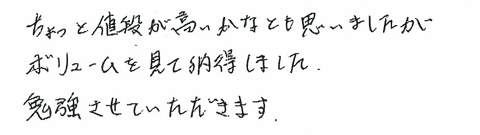 ちょっと値段が高いかなとも思いましたが
ボリュームを見て納得しました.
勉強させていただきます.